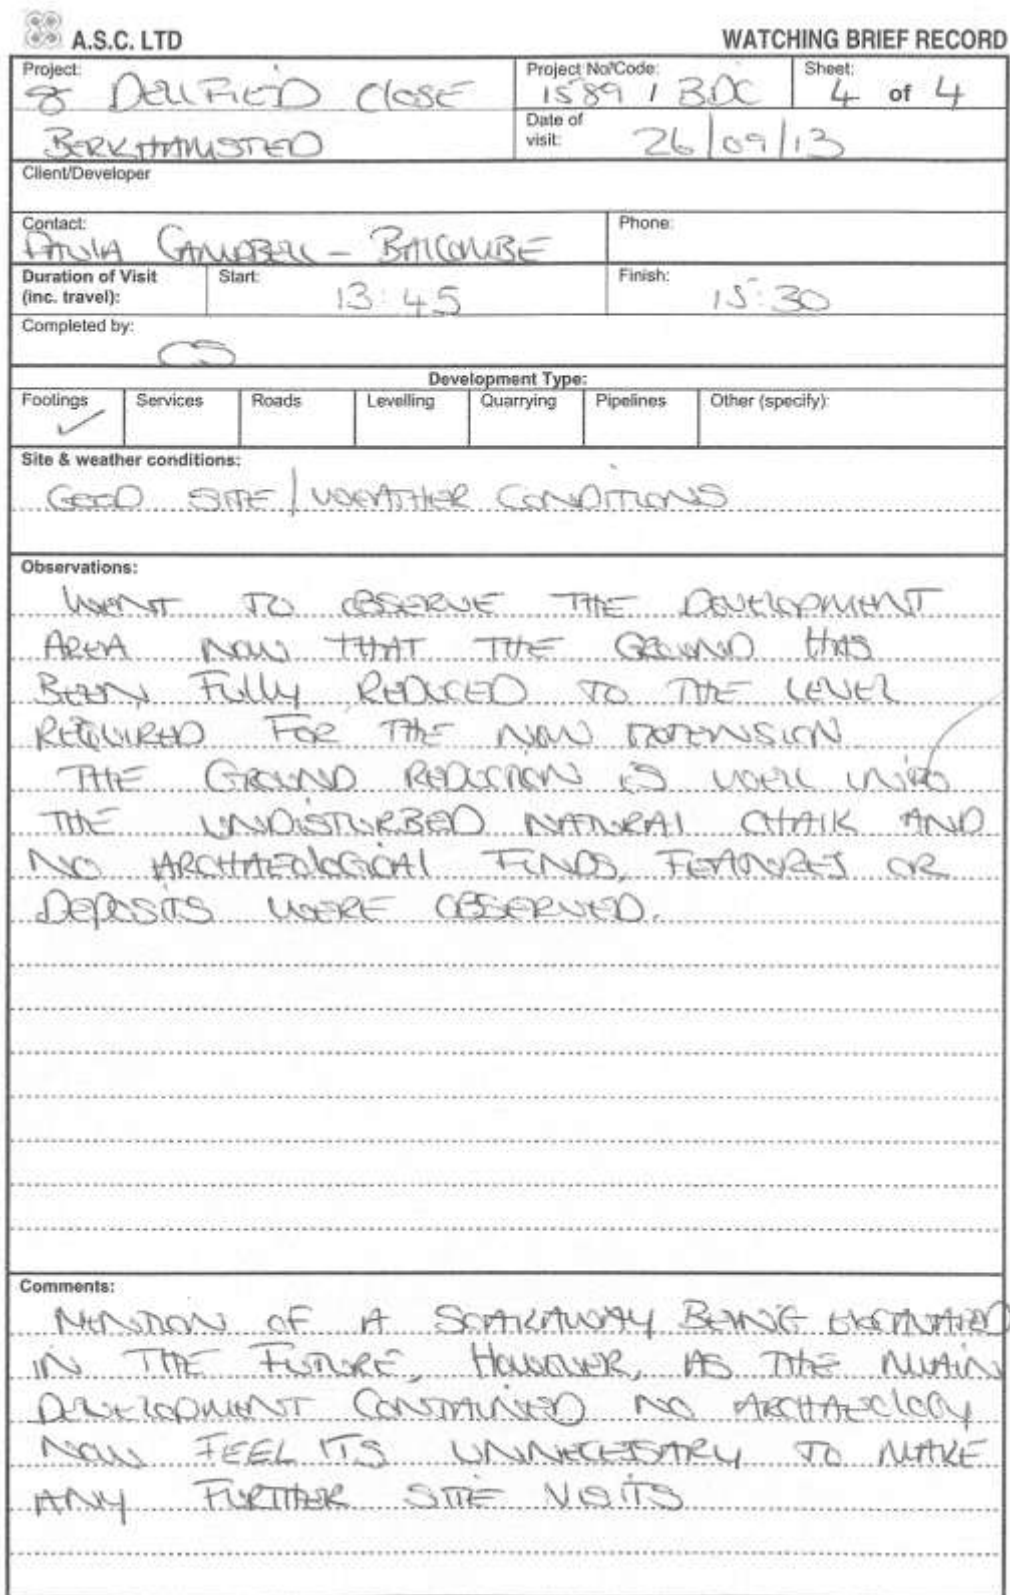 A.S.C. LTD
WATCHING BRIEF RECORD
Project:
8 DELLFIELD CLOSE
BERKHAMSTED
Project No/Code:
1589 / BDC
Sheet:
4 of 4
Date of visit:
26/09/13
Client/Developer
Contact:
PAULA CAMPBELL - BALCOMBE
Phone:
Duration of Visit (inc. travel):
Start:
13:45
Finish:
15:30
Completed by:
CS
Development Type:
Footings ✓
Services
Roads
Levelling
Quarrying
Pipelines
Other (specify):
Site & weather conditions:
GOOD SITE / WEATHER CONDITIONS
Observations:
WENT TO OBSERVE THE DEVELOPMENT
AREA NOW THAT THE GROUND HAS
BEEN FULLY REDUCED TO THE LEVEL
REQUIRED FOR THE NEW EXTENSION
THE GROUND REDUCTION IS WELL INTO
THE UNDISTURBED NATURAL CHALK AND
NO ARCHAEOLOGICAL FINDS, FEATURES OR
DEPOSITS WERE OBSERVED.
Comments:
MENTION OF A SOAKAWAY BEING EXCAVATED
IN THE FUTURE, HOWEVER, AS THE MAIN
DEVELOPMENT CONTAINED NO ARCHAEOLOGY
NOW FEEL ITS UNNECESSARY TO MAKE
ANY FURTHER SITE VISITS